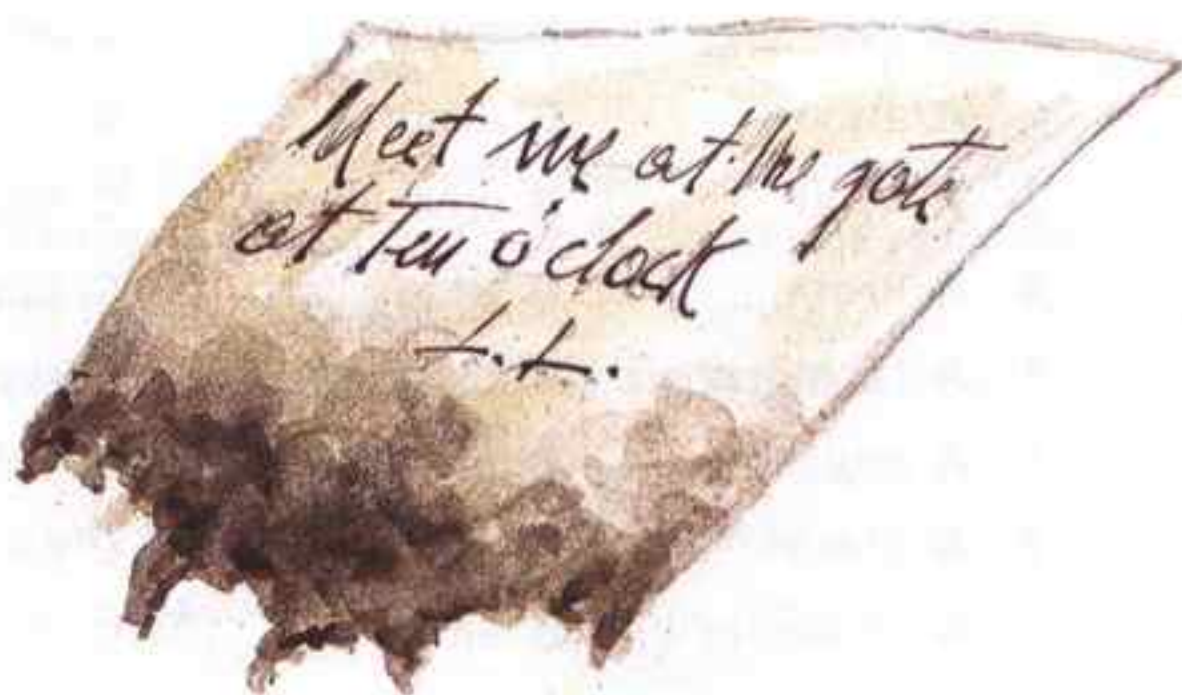 Meet me at the gate
at Ten o'clock
L.L.